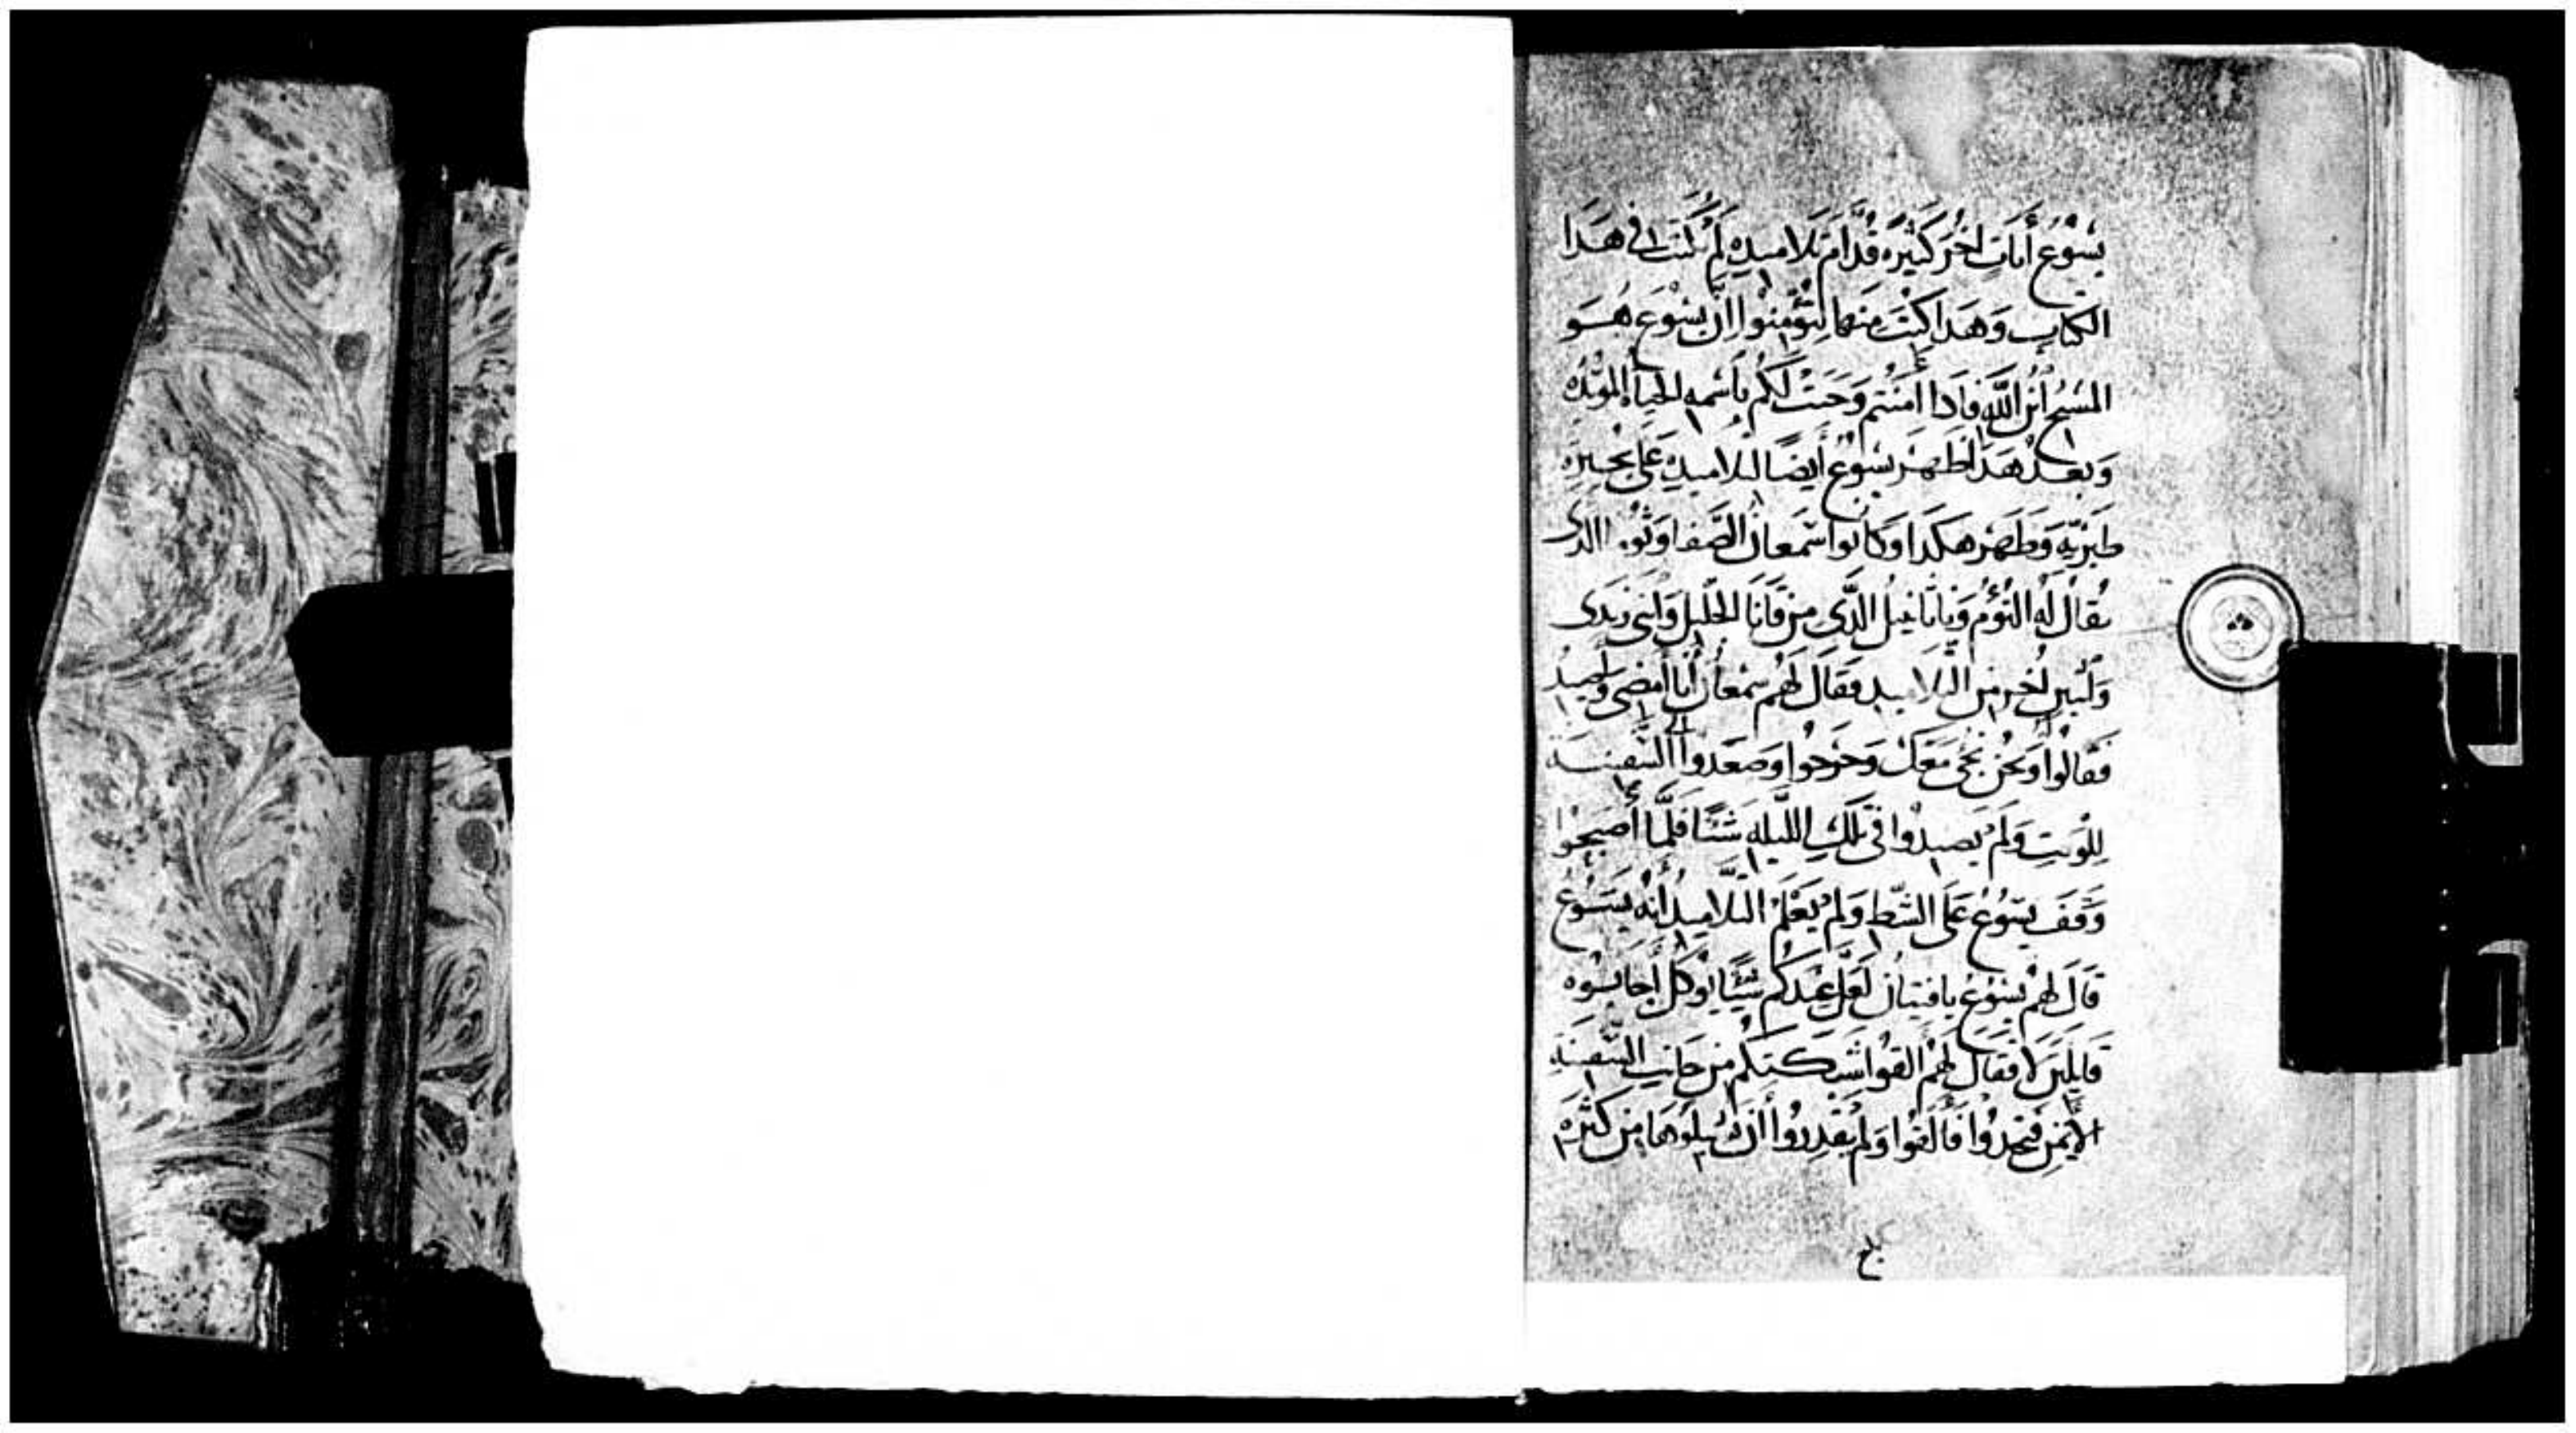 يسُوُع أياتٍ اخُر كثيره قُدّامَ تلاميده لَم تُكتَب في هَدا
الكتاب وَهَدا كتبَ منها لتؤمِنوا ان يسُوع هُو
المسيح أبن الله فادا أمنتم وَجَبَت لَكُم باسمه الحياه المؤبده
وَبعد هَدا ظهر يسُوع أيضًا لتلاميده عَلى بحيره
طبريّه وَظهر هكدا وكانوا سمعان الصَّفا وتوما الدى
يُقال لَهُ التؤم وَناتانيل الدّى من قانا الجليل وَابنى زبَدى
وَاتنين اخر من التّلاميد فقال لهُم سمعان أنا أمضى وأصيدُ
فقالُوا وَنحن نجى مَعَك وَخرَجوا وصَعَدوا الى السّفينة
للوَقتِ وَلم يَصيدُوا في تلك الليله شَيًا فلمَّا أصبَحوا
وَقَف يسُوُع عَلَى الشّط وَلم يَعْلَم التّلاميد أنّه يسُوع
قَالَ لهم يسُوُع يا فتيان لَعَلّ عندكُم شيًا يوكل أجابوه
قايلين لا فقال لهُم القوا شبكتكم من جَانِب السّفينة
الأيمن فتجدُوا فألقوا وَلم يقدِروا أن يشيلوهَا من كَثرة
بلغ